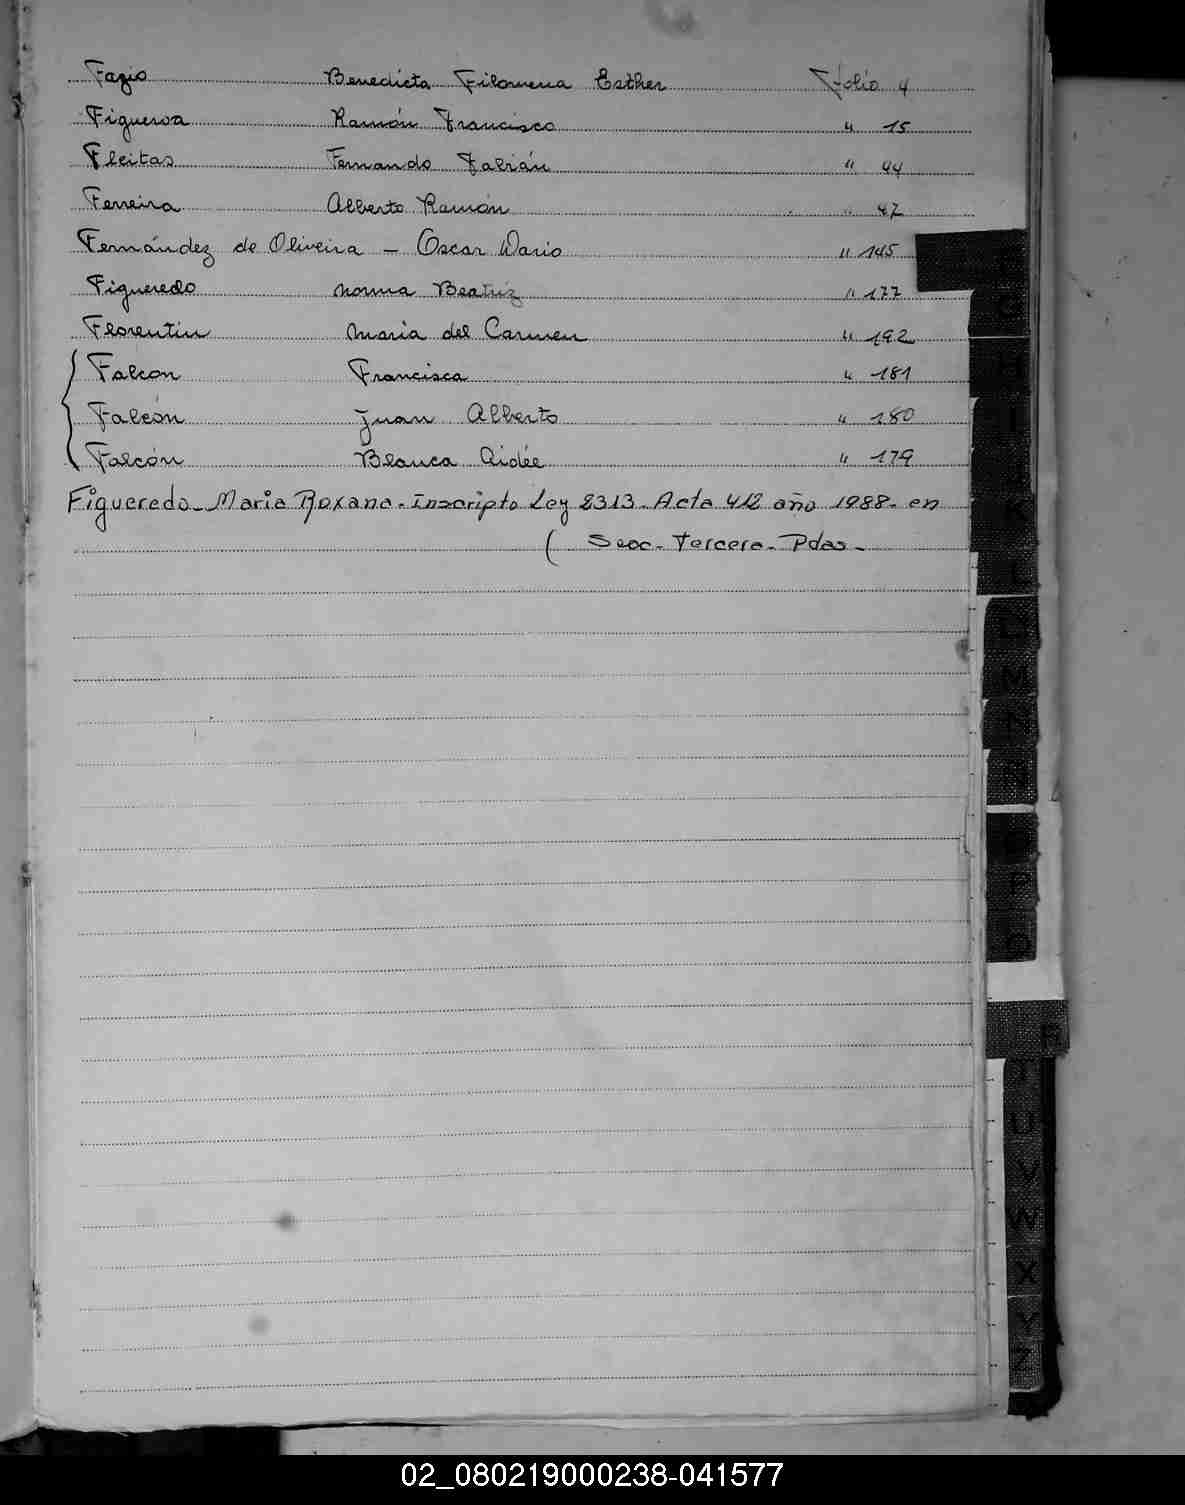 Fazio Benedicta Filomena Esther Folio 4
Figueroa Ramón Francisco " 15
Fleitas Fernando Fabián " 44
Ferreira Alberto Ramón " 47
Fernández de Oliveira - Oscar Dario " 145
Figueredo Norma Beatriz " 177
Florentín Maria del Carmen " 192
Falcon Francisca " 181
Falcón Juan Alberto " 180
Falcón Blanca Aidée " 179
Figueredo - Maria Roxana - Inscripto Ley 2313 - Acta 412 año 1988 - en
( Secc - Tercera - Pdas -
G
H
I
J
K
L
LL
M
N
Ñ
O
P
Q
R
U
V
W
X
Y
Z
02_080219000238-041577